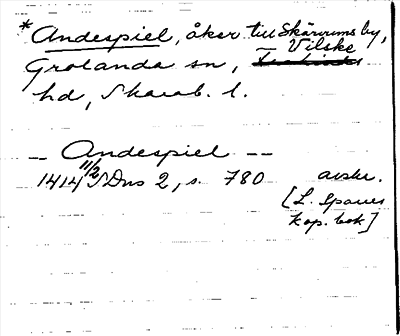 * Andespiel, åker till Skärvums by,
Grolanda sn, Vilske
hd, Skarab. l.
— Andespiel —
1414 11/2 SDns 2, s. 780 avskr.
[L. Sparres
kop. bok]